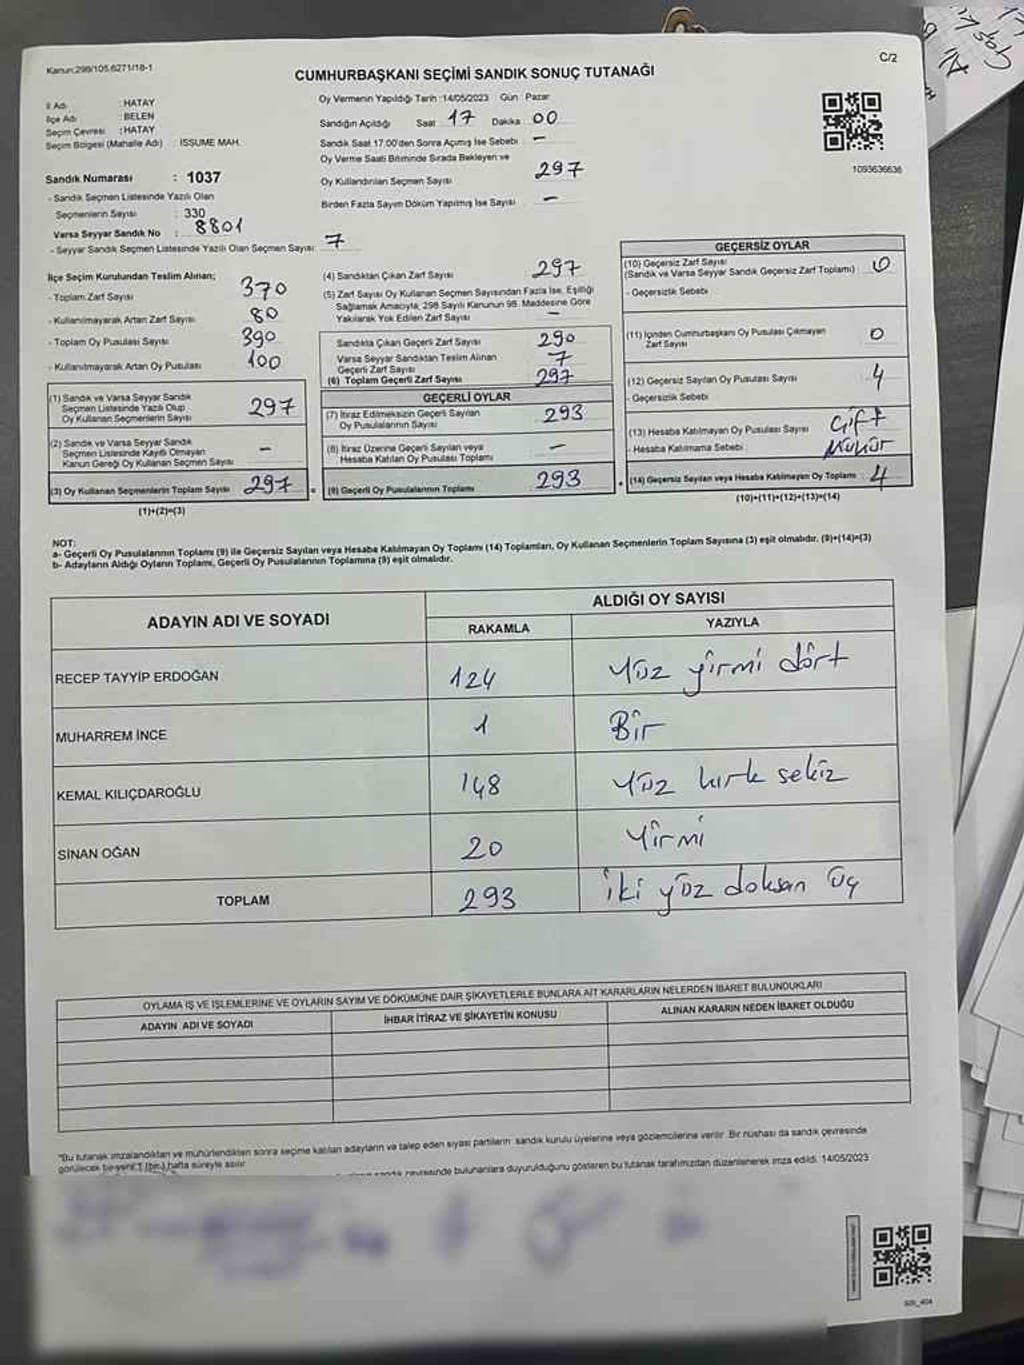 Kanun:298/105,6271/18-1
C/2
CUMHURBAŞKANI SEÇİMİ SANDIK SONUÇ TUTANAĞI
İl Adı : HATAY
İlçe Adı : BELEN
Seçim Çevresi : HATAY
Seçim Bölgesi (Mahalle Adı) : ISSUME MAH.
Sandık Numarası : 1037
- Sandık Seçmen Listesinde Yazılı Olan
Seçmenlerin Sayısı : 330
Varsa Seyyar Sandık No : 8801
- Seyyar Sandık Seçmen Listesinde Yazılı Olan Seçmen Sayısı: 7
Oy Vermenin Yapıldığı Tarih :14/05/2023 Gün : Pazar
Sandığın Açıldığı Saat 17 Dakika 00
Sandık Saat 17.00'den Sonra Açımış İse Sebebi : —
Oy Verme Saati Bitiminde Sırada Bekleyen ve
Oy Kullandırılan Seçmen Sayısı 297
Birden Fazla Sayım Döküm Yapılmış İse Sayısı —
1093636636
İlçe Seçim Kurulundan Teslim Alınan;
- Toplam Zarf Sayısı 370
- Kullanılmayarak Artan Zarf Sayısı 80
- Toplam Oy Pusulası Sayısı 390
- Kullanılmayarak Artan Oy Pusulası 100
(1) Sandık ve Varsa Seyyar Sandık
Seçmen Listesinde Yazılı Olup
Oy Kullanan Seçmenlerin Sayısı 297
(2) Sandık ve Varsa Seyyar Sandık
Seçmen Listesinde Kayıtlı Olmayan
Kanun Gereği Oy Kullanan Seçmen Sayısı —
(3) Oy Kullanan Seçmenlerin Toplam Sayısı 297
(1)+(2)=(3)
(4) Sandıktan Çıkan Zarf Sayısı 297
(5) Zarf Sayısı Oy Kullanan Seçmen Sayısından Fazla İse, Eşitliği
Sağlamak Amacıyla, 298 Sayılı Kanunun 98. Maddesine Göre
Yakılarak Yok Edilen Zarf Sayısı —
Sandıkta Çıkan Geçerli Zarf Sayısı 290
Varsa Seyyar Sandıktan Teslim Alınan
Geçerli Zarf Sayısı 7
(6) Toplam Geçerli Zarf Sayısı 297
GEÇERLİ OYLAR
(7) İtiraz Edilmeksizin Geçerli Sayılan
Oy Pusulalarının Sayısı 293
(8) İtiraz Üzerine Geçerli Sayılan veya
Hesaba Katılan Oy Pusulası Toplamı —
= (9) Geçerli Oy Pusulalarının Toplamı 293
GEÇERSİZ OYLAR
(10) Geçersiz Zarf Sayısı
(Sandık ve Varsa Seyyar Sandık Geçersiz Zarf Toplamı) 0
- Geçersizlik Sebebi
(11) İçinden Cumhurbaşkanı Oy Pusulası Çıkmayan
Zarf Sayısı 0
(12) Geçersiz Sayılan Oy Pusulası Sayısı 4
- Geçersizlik Sebebi
(13) Hesaba Katılmayan Oy Pusulası Sayısı Çift
- Hesaba Katılmama Sebebi Mühür
+ (14) Geçersiz Sayılan veya Hesaba Katılmayan Oy Toplamı 4
(10)+(11)+(12)+(13)=(14)
NOT:
a- Geçerli Oy Pusulalarının Toplamı (9) ile Geçersiz Sayılan veya Hesaba Katılmayan Oy Toplamı (14) Toplamları, Oy Kullanan Seçmenlerin Toplam Sayısına (3) eşit olmalıdır. (9)+(14)=(3)
b- Adayların Aldığı Oyların Toplamı, Geçerli Oy Pusulalarının Toplamına (9) eşit olmalıdır.
ADAYIN ADI VE SOYADI
ALDIĞI OY SAYISI
RAKAMLA YAZIYLA
RECEP TAYYİP ERDOĞAN 124 Yüz yirmi dört
MUHARREM İNCE 1 Bir
KEMAL KILIÇDAROĞLU 148 Yüz kırk sekiz
SİNAN OĞAN 20 Yirmi
TOPLAM 293 iki yüz doksan üç
OYLAMA İŞ VE İŞLEMLERİNE VE OYLARIN SAYIM VE DÖKÜMÜNE DAİR ŞİKAYETLERLE BUNLARA AİT KARARLARIN NELERDEN İBARET BULUNDUKLARI
ADAYIN ADI VE SOYADI İHBAR İTİRAZ VE ŞİKAYETİN KONUSU ALINAN KARARIN NEDEN İBARET OLDUĞU
"Bu tutanak imzalandıktan ve mühürlendikten sonra seçime katılan adayların ve talep eden siyasi partilerin sandık kurulu üyelerine veya gözlemcilerine verilir. Bir nüshası da sandık çevresinde
görülecek bir yere 1 (bir) hafta süreyle asılır
sandık çevresinde bulunanlara duyurulduğunu gösteren bu tutanak tarafımızdan düzenlenerek imza edildi. 14/05/2023